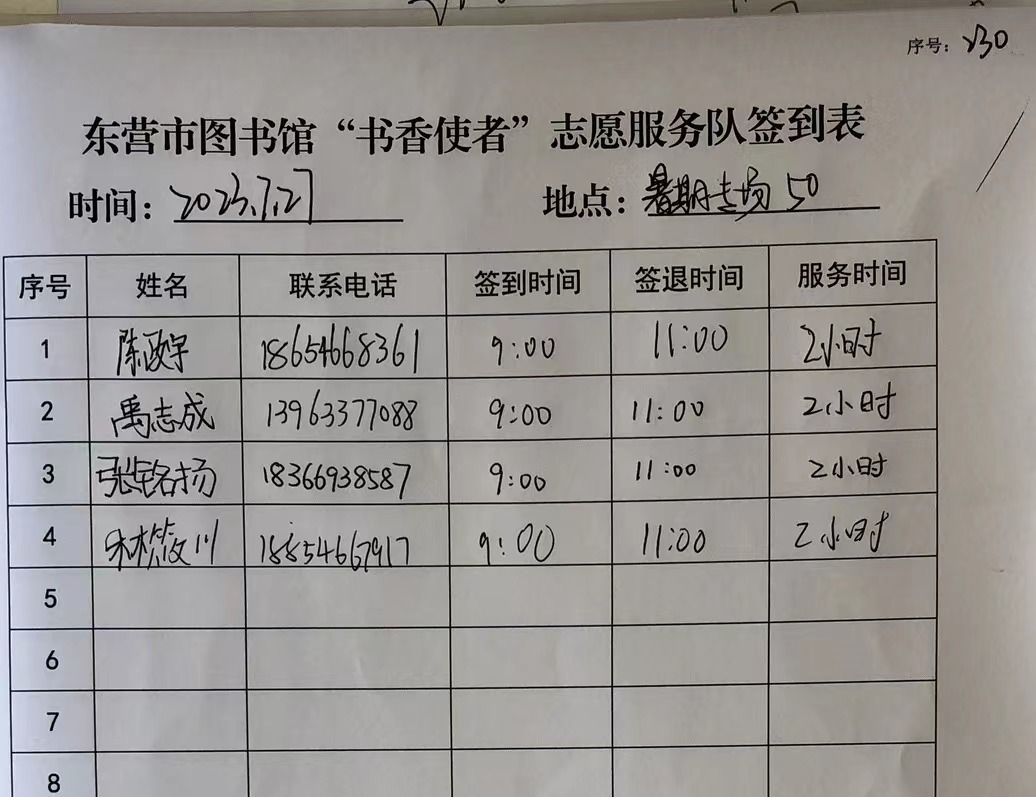 序号：230
东营市图书馆“书香使者”志愿服务队签到表
时间：2023.7.27 地点：暑期专场 50
序号 姓名 联系电话 签到时间 签退时间 服务时间
1 陈政宇 18654668361 9:00 11:00 2小时
2 禹志成 13963377088 9:00 11:00 2小时
3 张铭扬 18366938587 9:00 11:00 2小时
4 18854667917 9:00 11:00 2小时
5
6
7
8